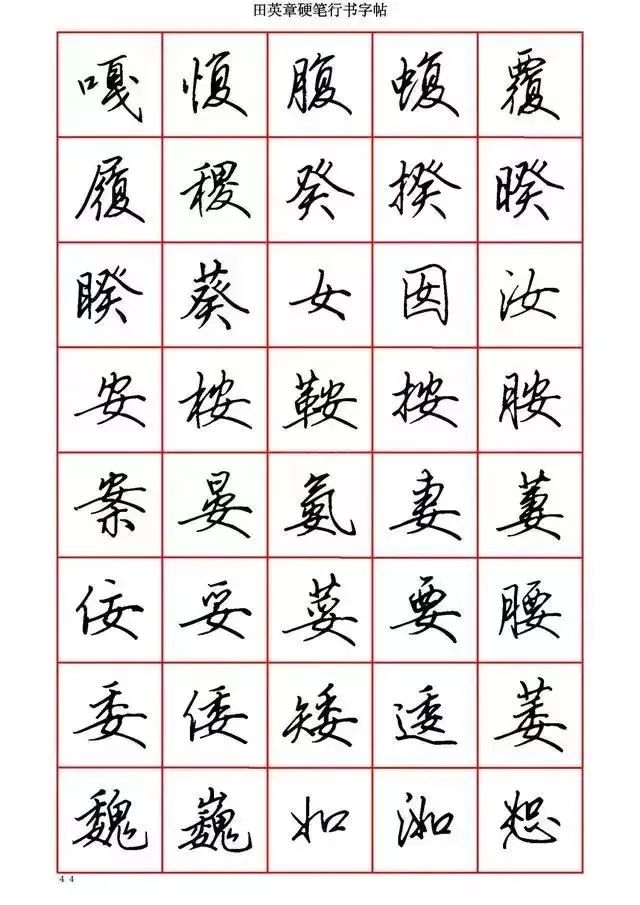 田英章硬笔行书字帖
嘎 愎 腹 蝮 覆
履 稷 癸 揆 暌
睽 葵 女 囡 汝
安 桉 鞍 按 胺
案 晏 氨 妻 萋
佞 妥 荽 要 腰
委 倭 矮 逶 萎
魏 巍 如 洳 恕
44